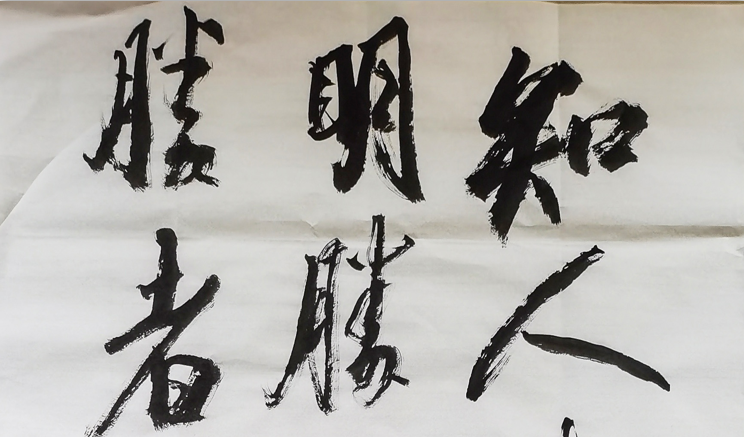 知人
明勝
勝者